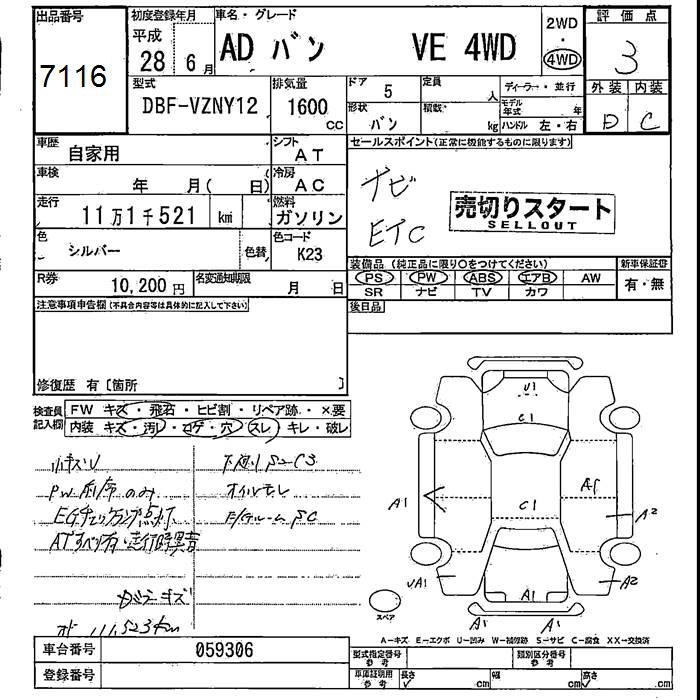 出品番号 初度登録年月 車名・グレード 2WD 評価点
7116 平成 28年 6月 AD バン VE 4WD ・ 4WD 3
型式 排気量 ドア 定員 ディーラー・並行 外装 内装
DBF-VZNY12 1600 cc 5 人 モデル年式 年 D C
形状 バン 積載 kg ハンドル 左・右
車歴 自家用 シフト AT セールスポイント(正常に機能するものに限ります)
車検 年 月( 日) 冷房 AC ナビ
走行 11万1千521 km 燃料 ガソリン ETC
売切りスタート
SELLOUT
色 シルバー 色替 色コード K23
装備品(純正品に限り○をつけてください) 新車保証書
R券 10,200円 名変通知期限 月 日 PS PW ABS エアB AW 有・無
SR ナビ TV カワ
注意事項申告欄(不具合内容等は具体的に記入して下さい) 後日品
修復歴 有〔箇所 〕
検査員記入欄 FW キズ・飛石・ヒビ割・リペア跡・・×要
内装 キズ・汚レ・コゲ・穴・スレ・キレ・破レ
小キズU 下廻りS2C3
PW前席のみ オイルモレ
EGチェックランプ点灯 E/Gルーム SC
ATすべり有・走行時異音
ガラスキズ
111,523km
U1
C1
A1 C1 A2
UA1 A1 A2
スペア A1 A1
A-キズ E-エクボ U-凹み W-補修跡 S-サビ C-腐食 XX-交換済
車台番号 059306 型式指定番号 参考 類別区分番号 参考
登録番号 車庫証明用 参考 長さ .cm 幅 .cm 高さ .cm